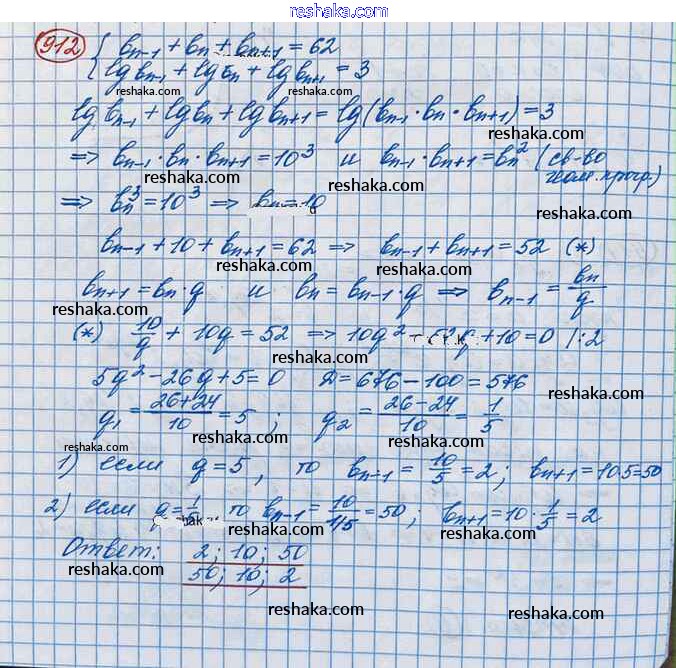 reshaka.com
912
{ bₙ₋₁ + bₙ + bₙ₊₁ = 62
lg bₙ₋₁ + lg bₙ + lg bₙ₊₁ = 3
reshaka.com reshaka.com
lg bₙ₋₁ + lg bₙ + lg bₙ₊₁ = lg(bₙ₋₁ · bₙ · bₙ₊₁) = 3
reshaka.com reshaka.com
=> bₙ₋₁ · bₙ · bₙ₊₁ = 10³ и bₙ₋₁ · bₙ₊₁ = bₙ² (св-во
геом. прогр.)
reshaka.com reshaka.com
=> bₙ³ = 10³ => bₙ = 10
reshaka.com
bₙ₋₁ + 10 + bₙ₊₁ = 62 => bₙ₋₁ + bₙ₊₁ = 52 (*)
reshaka.com reshaka.com
bₙ₊₁ = bₙ · q и bₙ = bₙ₋₁ · q => bₙ₋₁ = bₙ/q
reshaka.com reshaka.com
(*) 10/q + 10q = 52 => 10q² - 52q + 10 = 0 |:2
reshaka.com
5q² - 26q + 5 = 0 D = 676 - 100 = 576
reshaka.com reshaka.com
q₁ = (26+24)/10 = 5 ; q₂ = (26-24)/10 = 1/5
reshaka.com reshaka.com
reshaka.com
1) если q = 5, то bₙ₋₁ = 10/5 = 2; bₙ₊₁ = 10·5 = 50
reshaka.com reshaka.com
2) если q = 1/5 то bₙ₋₁ = 10/1/5 = 50; bₙ₊₁ = 10 · 1/5 = 2
reshaka.com reshaka.com
Ответ: 2; 10; 50
reshaka.com reshaka.com
50; 10; 2
reshaka.com reshaka.com
reshaka.com reshaka.com